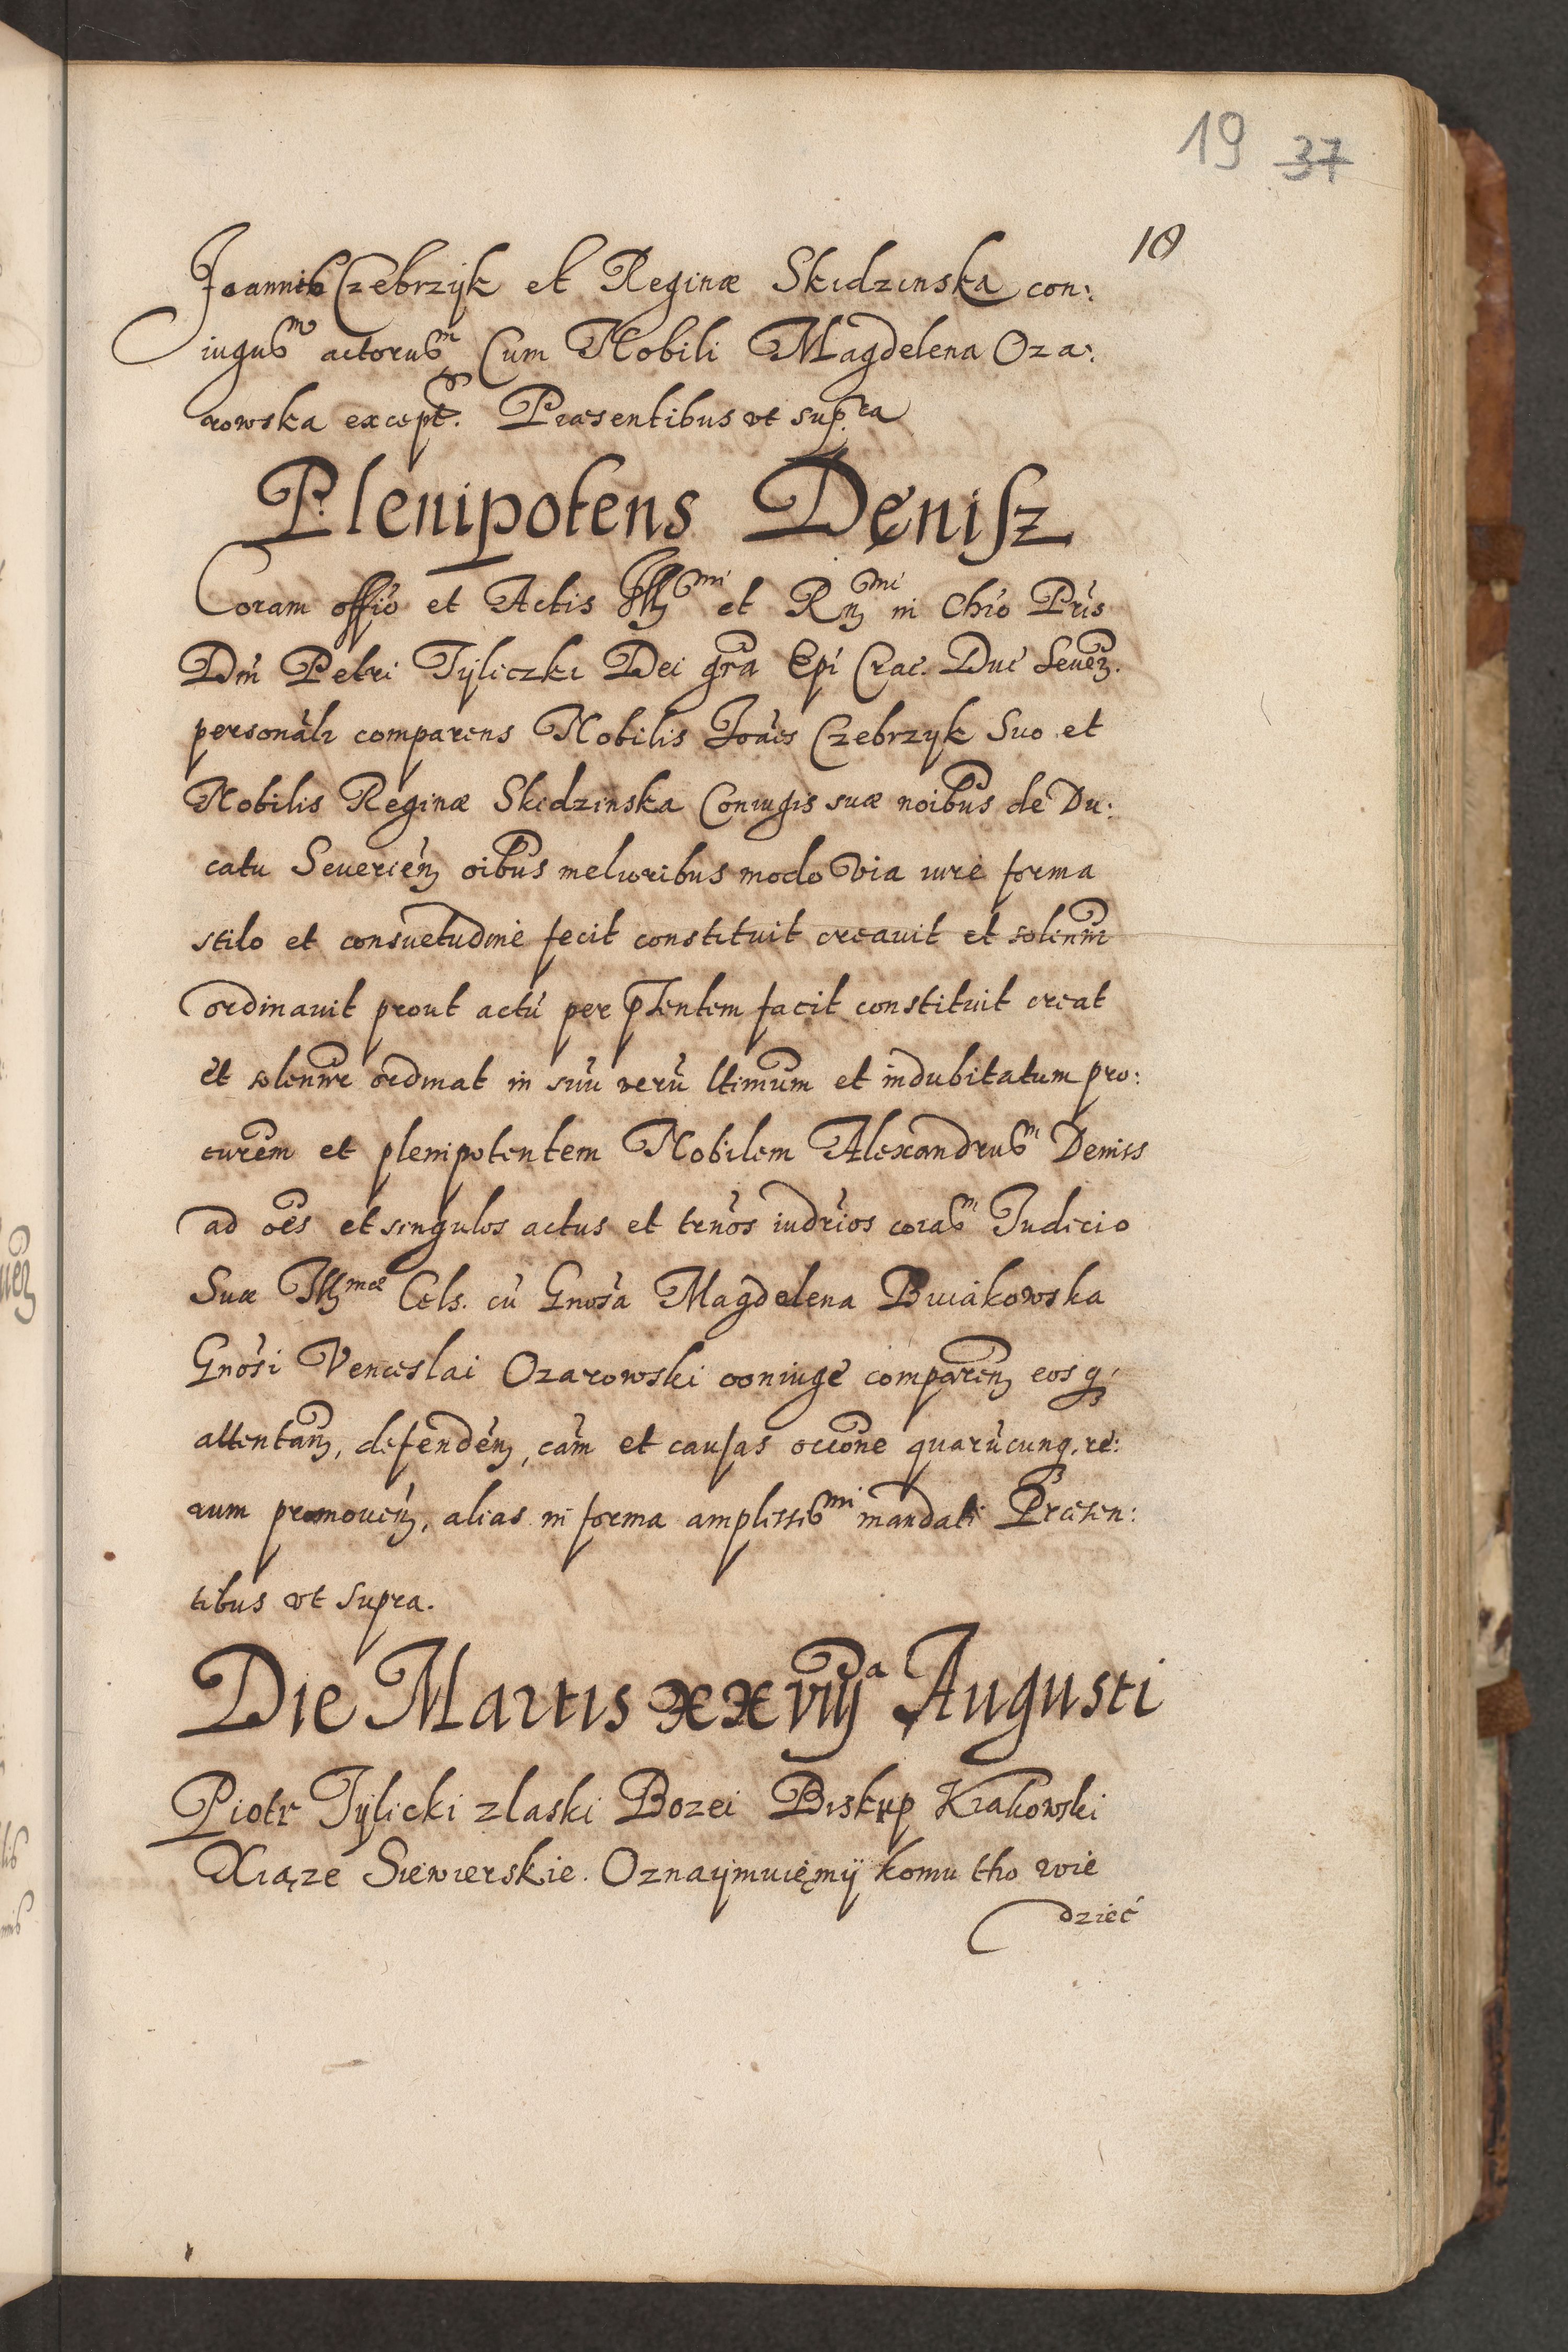 19 37
18
Joannis Czebrzÿk et Reginæ Skidzinska con:
iugum actorum Cum Nobili Magdelena Oza:
rowska except. Præsentibus vt supra
Plenipotens Dęnisz
Coram offio et Actis Illmi et Rmi in Chro Pris
Dni Petri Tÿliczki Dei gra Epi Crac. Duc Seueń.
personalr comparens Nobilis Joaes Czebrzyk Suo et
Nobilis Reginæ Skidzinska Coniugis suæ noibus de Du:
catu Seuerień oibus melioribus modo via iure forma
stilo et consuetudine fecit constituit creauit et solennr
ordinauit prout actu per pntentem facit constituit creat
et solennr ordinat in suu veru ltimum et indubitatum pro:
curem et plenipotentem Nobilem Alexandrum Deniss
ad oes et singulos actus et trnos iudrios coram Judicio
Suæ Illmæ Cels. cu Gnosa Magdelena Buiakowska
Gnosi Venceslai Ozarowski coniuge comparen eosq
attentan, defenden, cam et causas occone quarucunq. re:
rum promouen, alias in forma amplissimi mandati Præsen:
tibus vt supra.
Die Martis xxviija Augusti
Piotr Tÿlicki zlaski Bozei Biskup Krakowski
Xiąze Siewierskie. Oznaÿmuięmÿ komu tho wie
dzieć